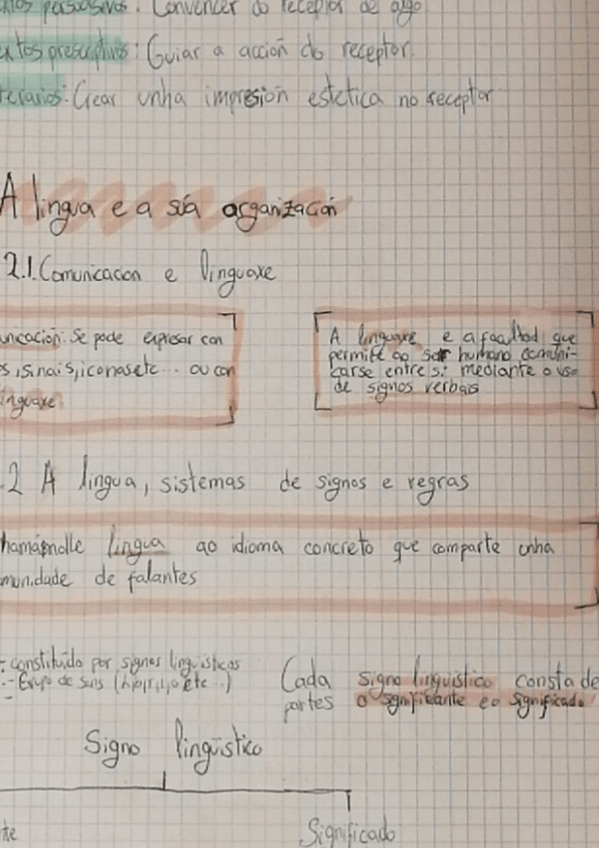 persuasivos: Convencer ao receptor de algo
prescriptivos: Guiar a acción do receptor.
Crear unha impresión estética no receptor
A lingua e a súa organización
2.1. Comunicacion e linguaxe
Se pode expresar con
sinais, iconas etc... ou con
A linguaxe e a facultad que
permite ao ser humano comuni-
carse entre si mediante o uso
de signos verbais
2 A lingua, sistemas de signos e regras
lingua ao idioma concreto que comparte unha
de falantes
constituído por signos lingüísticos
Cada signo lingüístico consta de
partes o significante e o significado
Signo lingüístico
Significado